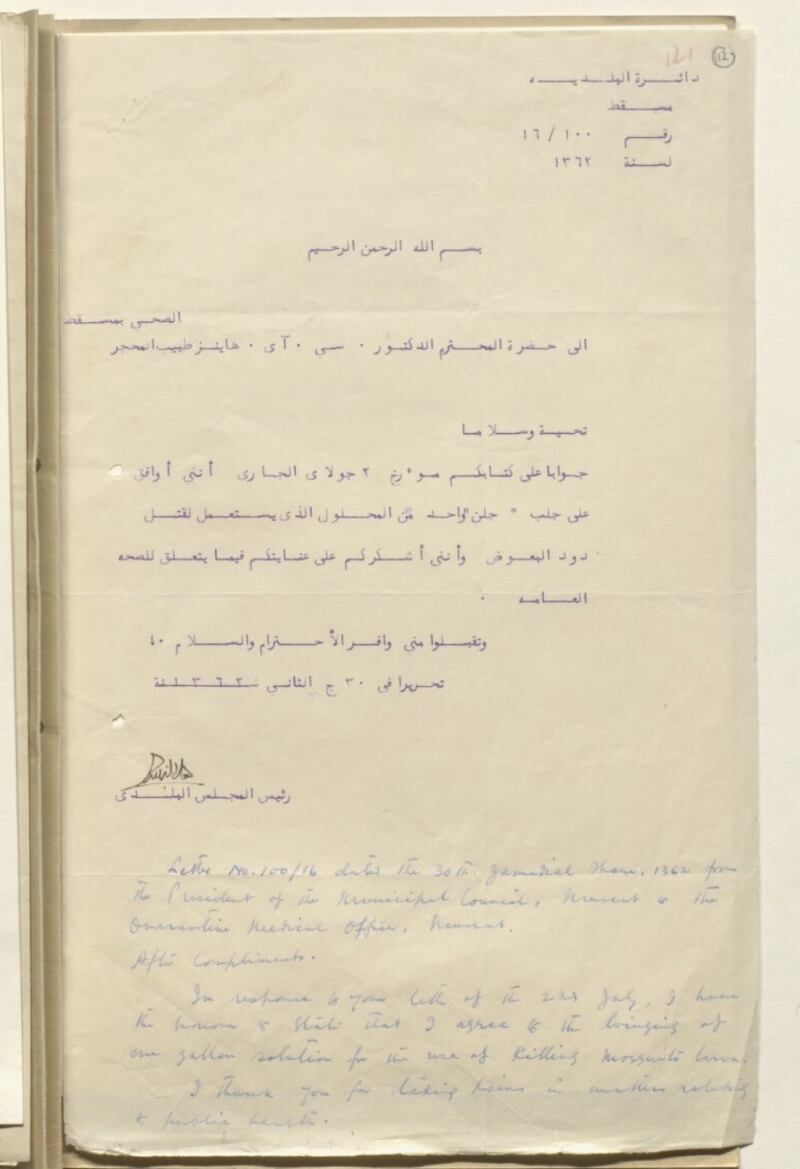 121
112
دائرة البلديه
مسقط
رقم ١٠٠ / ١٦
لسنة ١٣٦٢
بسم الله الرحمن الرحيم
الصحي بمسقط
الى حضرة المحترم الدكتور ٠ سي ٠ آى ٠ هاينز طبيب المحجر
تحية وسلاما
جوابا على كتابكم موءرخ ٢ جولاى الجارى أنني أوافق
على جلب " جلن" واحد من المحلول الذى يستعمل لقتل
دود البعوض وأنني أشكركم على عنايتكم فيما يتعلق للصحه
العامه ٠
وتقبلوا مني وافر الأحترام والسلام ٤٠
تحريرا في ٣٠ ج الثاني سنة ١٣٦٢
رئيس المجلس البلدى
Letter No. 100/16 dated the 30th Jamadial Thani, 1362 from
the President of the Municipal Council, Muscat to the
Quarantine Medical Officer, Muscat.
After Compliments.
In response to your letter of the 2nd July, I have
the honour to state that I agree to the bringing of
one gallon solution for the use of killing mosquito larva.
I thank you for taking pains in matters relating
to public health.